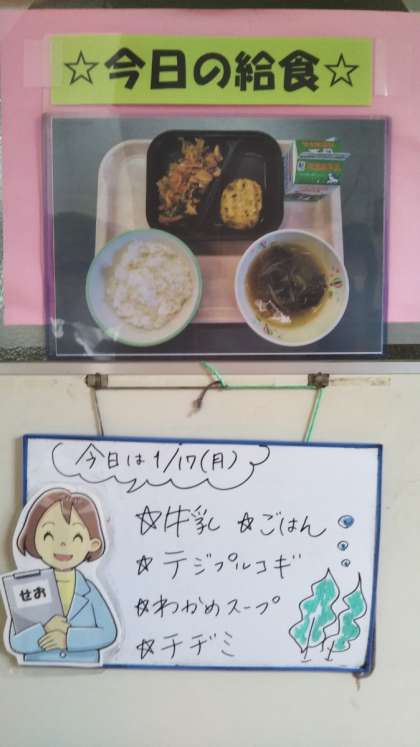 ☆今日の給食☆
今日は1/17(月)
☆牛乳 ☆ごはん
☆テジプルコギ
☆わかめスープ
☆チヂミ
せお